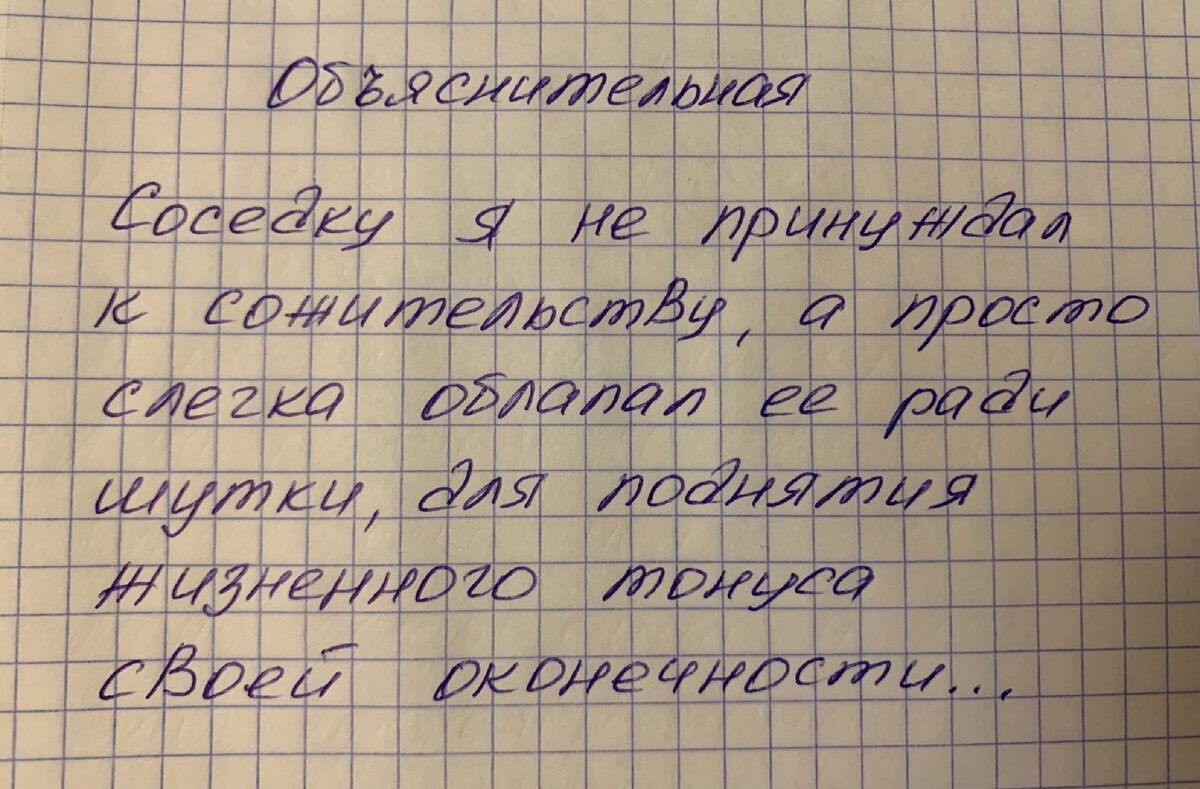 Объяснительная
Соседку я не принуждал
к сожительству, а просто
слегка облапал ее ради
шутки, для поднятия
жизненного тонуса
своей оконечности...